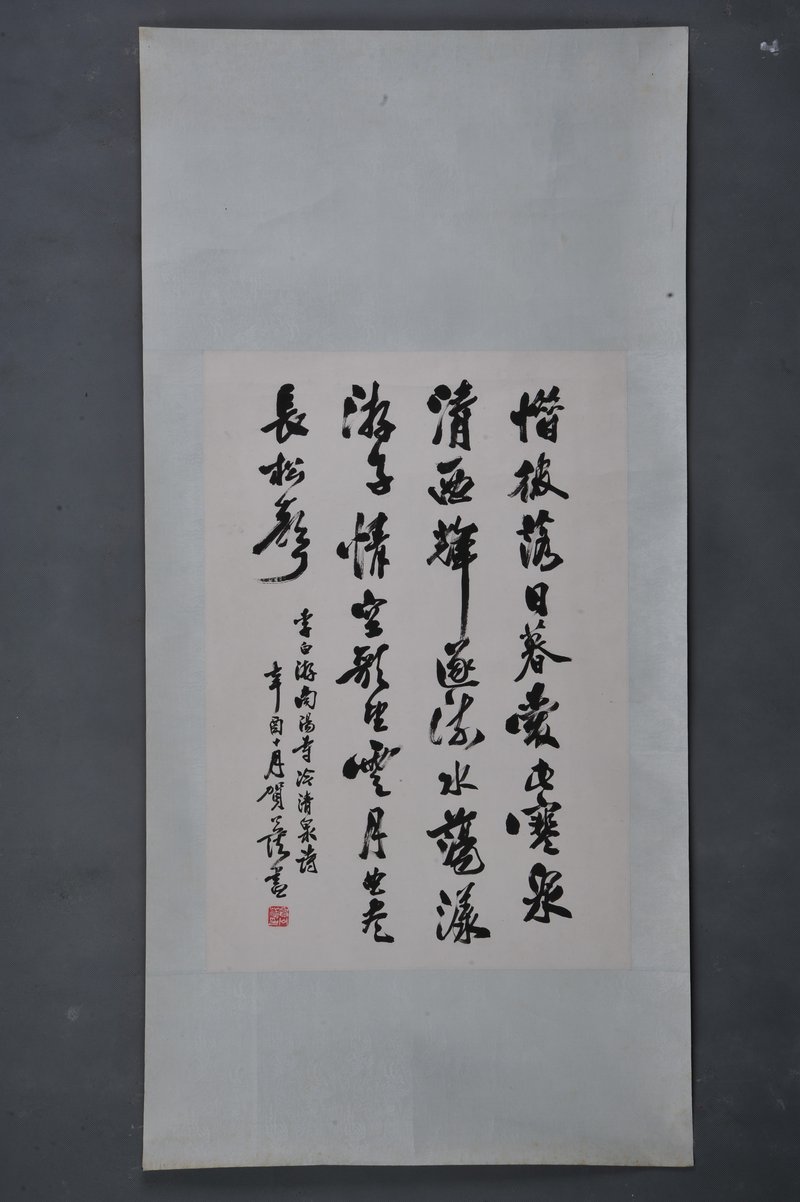 惜彼落日暮愛此寒泉
清西輝逐流水蕩漾
游子情空歌望雲月曲尽
長松聲
李白游南陽寺冷清泉詩
辛酉十月賀